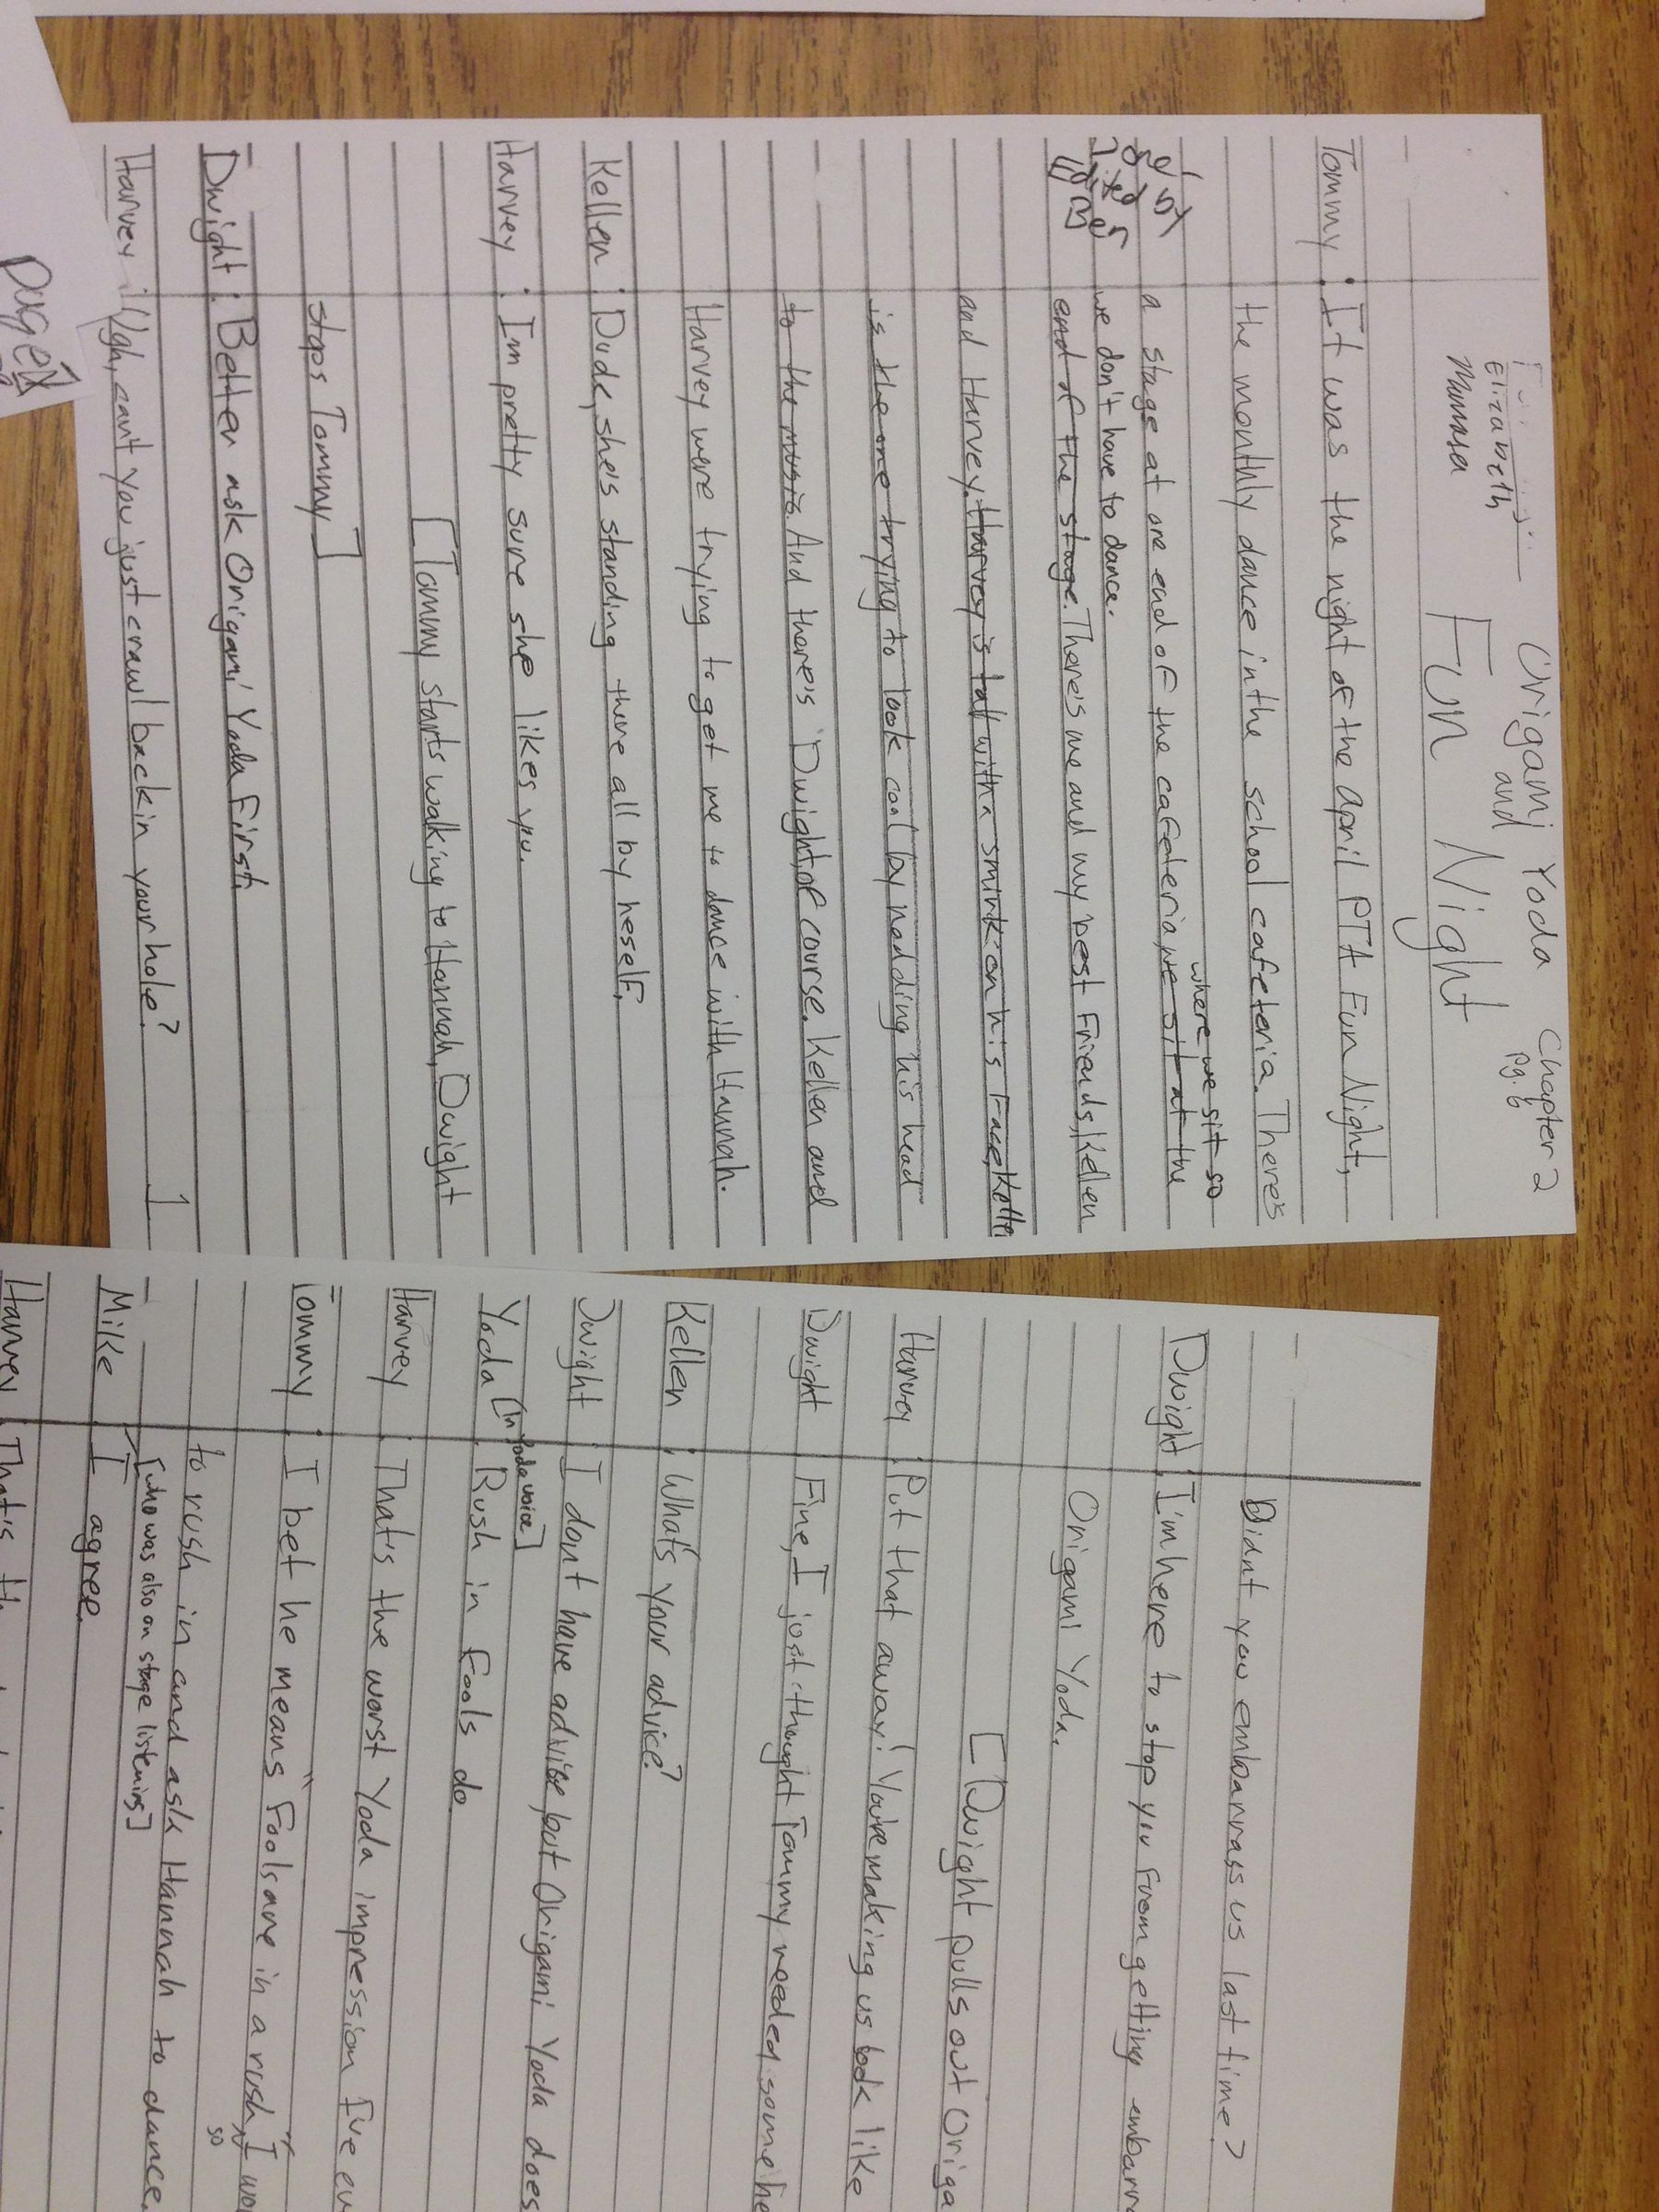 Elizabeth
Manasa
Origami Yoda
and
Fun Night
Chapter 2
pg. 6
Tommy : It was the night of the April PTA Fun Night,
the monthly dance in the school cafeteria. There's
where we sit so
a stage at one end of the cafeteria, we sit at the
we don't have to dance.
end of the stage. There's me and my best friends, Kellen
and Harvey. Harvey is with a smirk on his face, Kellen
is the one trying to look cool by nodding his head
to the music. And there's Dwight, of course. Kellen and
Harvey were trying to get me to dance with Hannah.
Kellen : Dude, she's standing there all by heself.
Harvey : Im pretty sure she likes you.
[Tommy starts walking to Hannah, Dwight
stops Tommy]
Dwight : Better ask Origami Yoda first.
Harvey : Ugh, can't you just crawl back in your hole?
page
Didnt you embarrass us last time?
Dwight : I'm here to stop you from getting embarra
Origami Yoda.
[Dwight pulls out Origa
Harvey : Put that away! You're making us look like
Dwight : Fine, I just thought Tommy needed some he
Kellen : What's your advice?
Dwight : I don't have advise, but Origami Yoda does
[in Yoda voice]
Yoda : Rush in fools do
Harvey : That's the worst Yoda impression I've ev
Tommy : I bet he means "Fools are in a rush," I wo
so
to rush in and ask Hannah to dance.
[who was also on stage listening]
Mike : I agree.
Harvey : That's